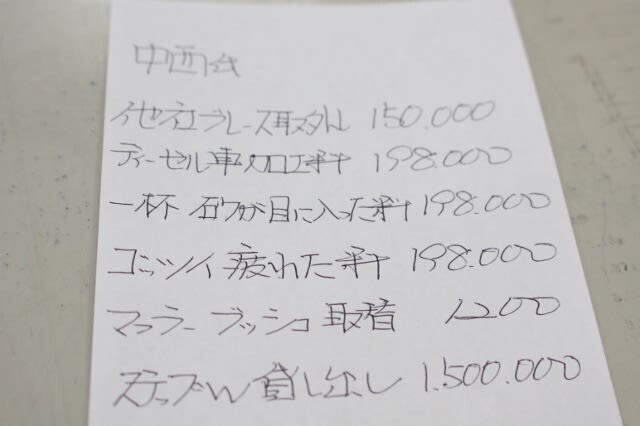 中西様
他社ブレース取外し 150.000
ディーゼル車加工料 198.000
一杯 石ウが目に入った料 198.000
コッツイ 疲れた料 198.000
マフラー ブッシュ 取着 1200
ステップW 貸し出し 1.500.000